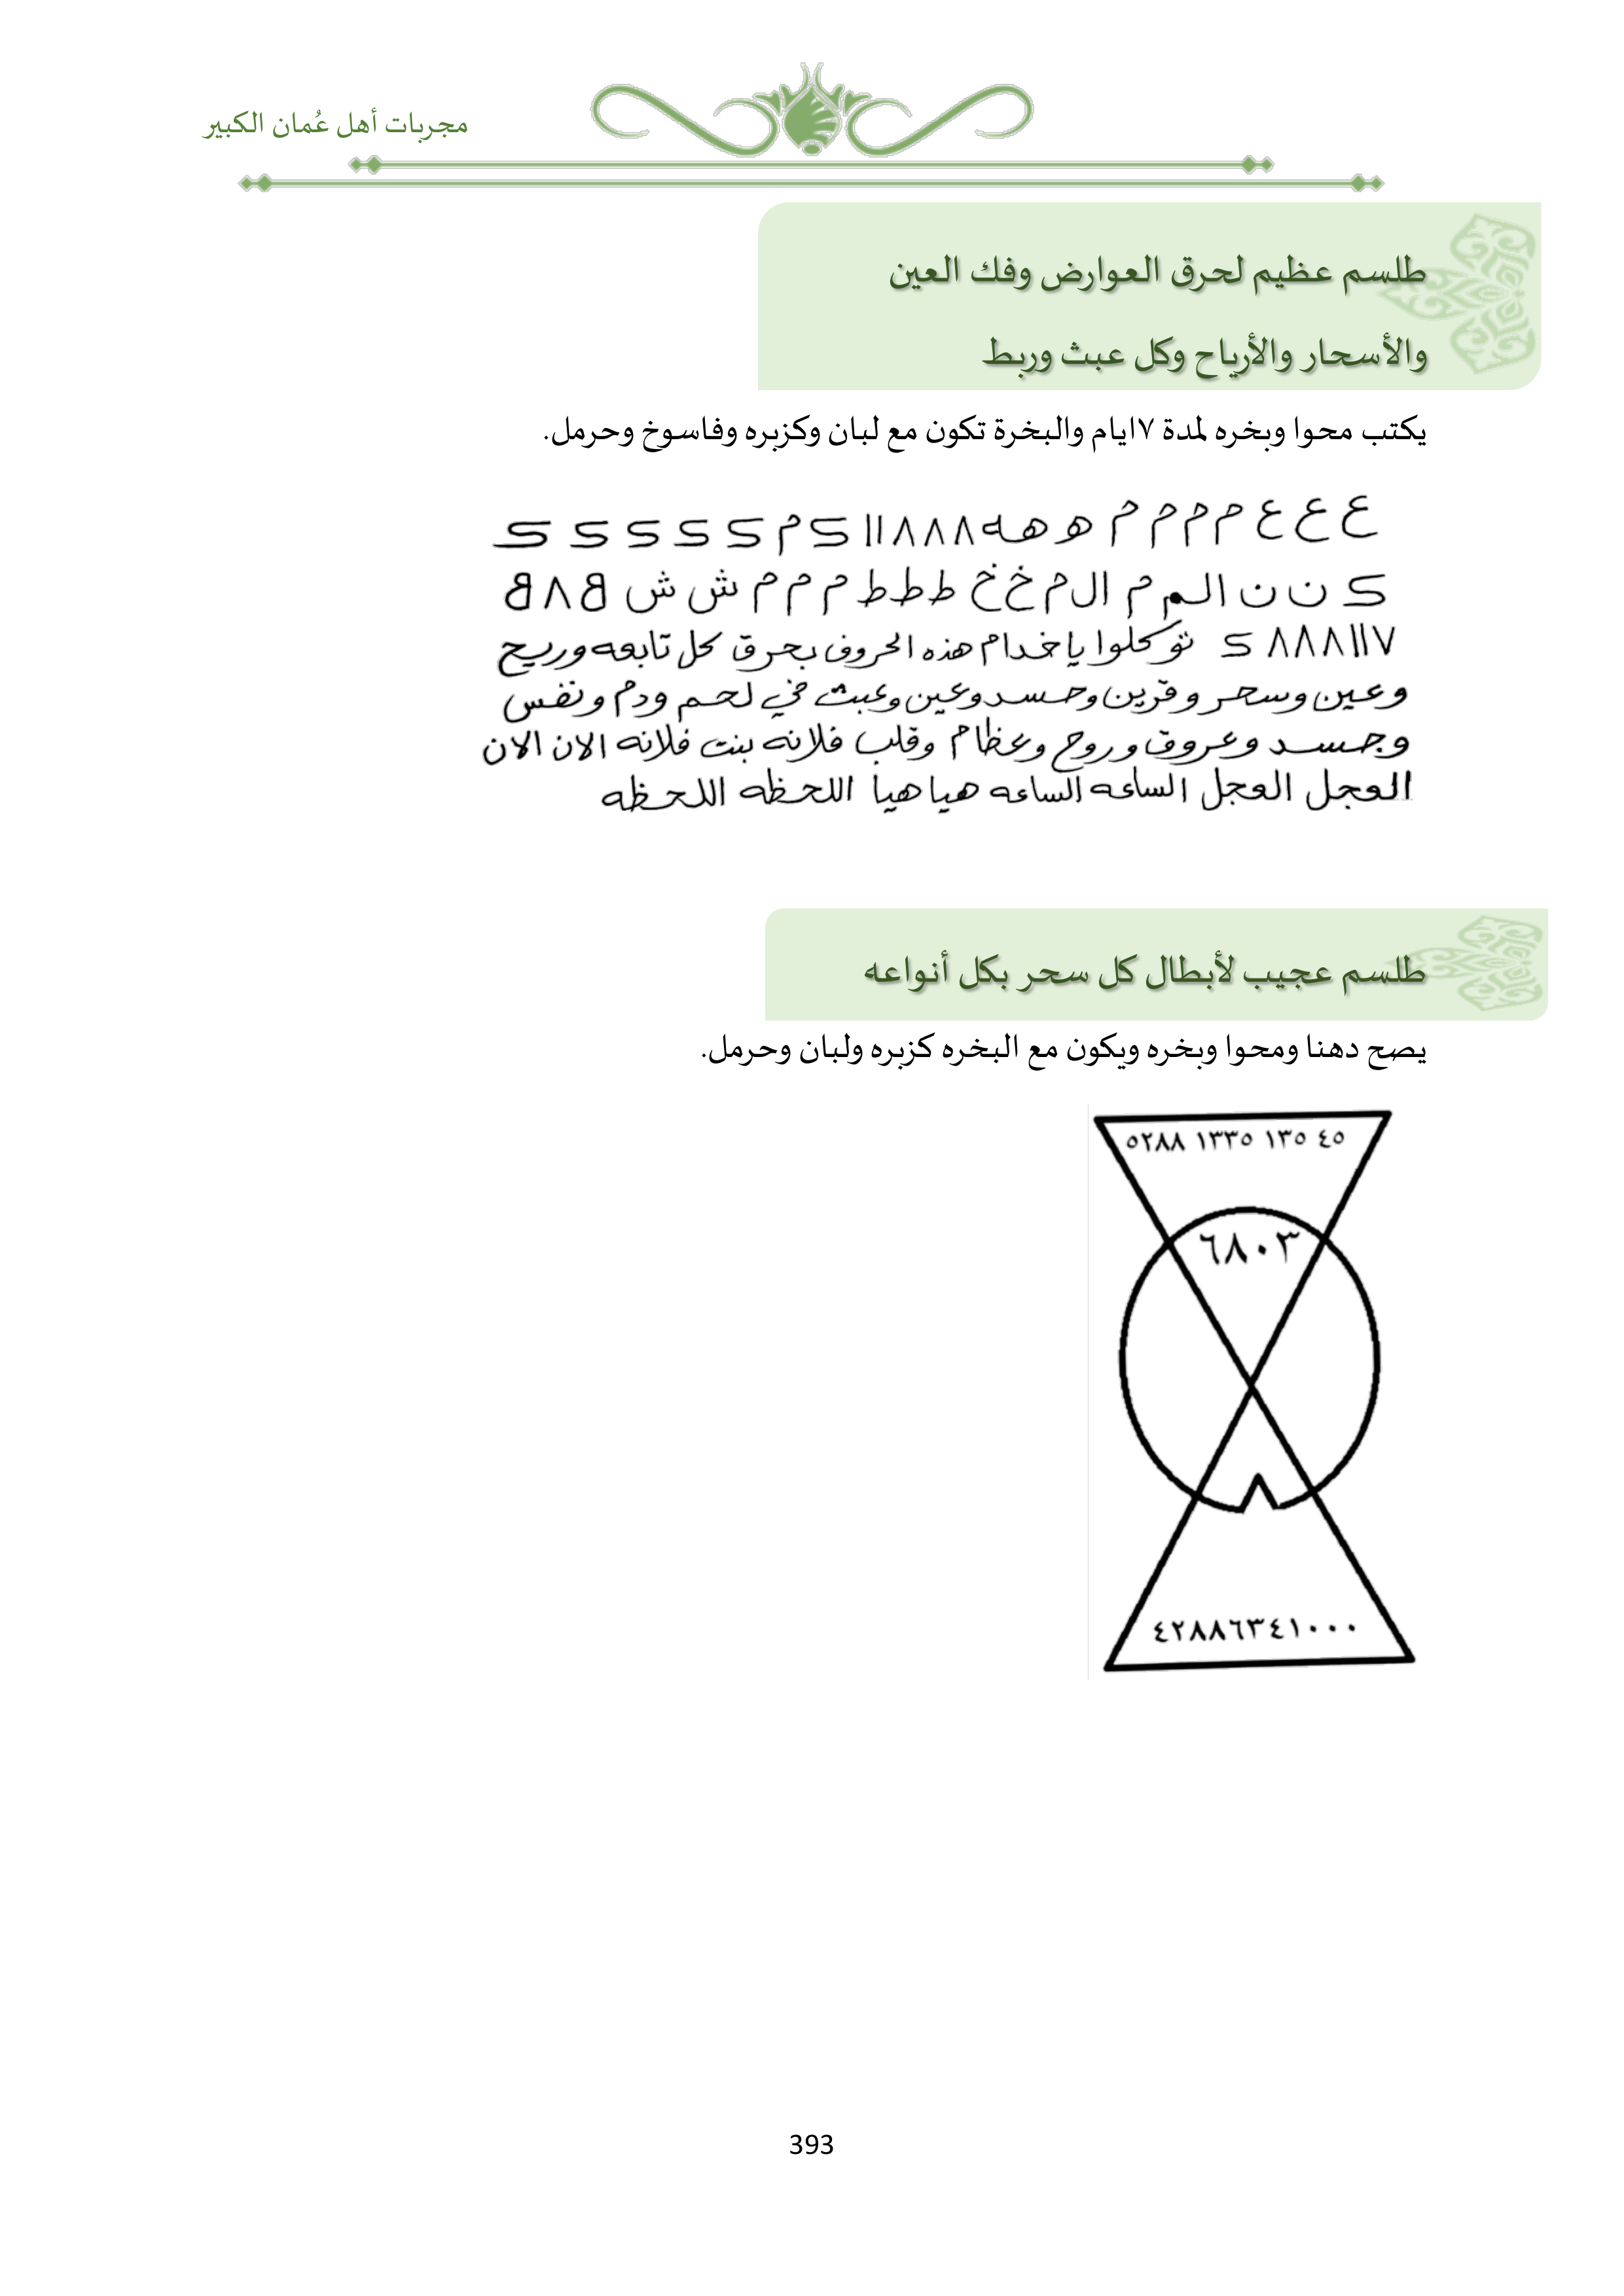 مجربات أهل عُمان الكبير
طلسم عظيم لحرق العوارض وفك العين
والأسحار والأرياح وكل عبث وربط
يكتب محوا وبخره لمدة ٧ايام والبخرة تكون مع لبان وكزبره وفاسوخ وحرمل.
ع ع ع م م م م ه هه ٨٨٨١١ ك م ك ك ك ك ك
ك ن ن الم م ال م خ خ ط ط ط م م م ش ش 8 ٨ 8
٧١١٨٨٨ ك توكلوا ياخدام هذه الحروف بحرق كل تابعه وريح
وعين وسحر وقرين وحسد وعين وعبث في لحم ودم ونفس
وجسد وعروق وروح وعظام وقلب فلانه بنت فلانه الان الان
العجل العجل الساعه الساعه هيا هيا اللحظه اللحظه
طلسم عجيب لأبطال كل سحر بكل أنواعه
يصح دهنا ومحوا وبخره ويكون مع البخره كزبره ولبان وحرمل.
٥٢٨٨ ١٣٣٥ ١٣٥ ٤٥
٦٨٠٣
٤٢٨٨٦٣٤١٠٠٠
393